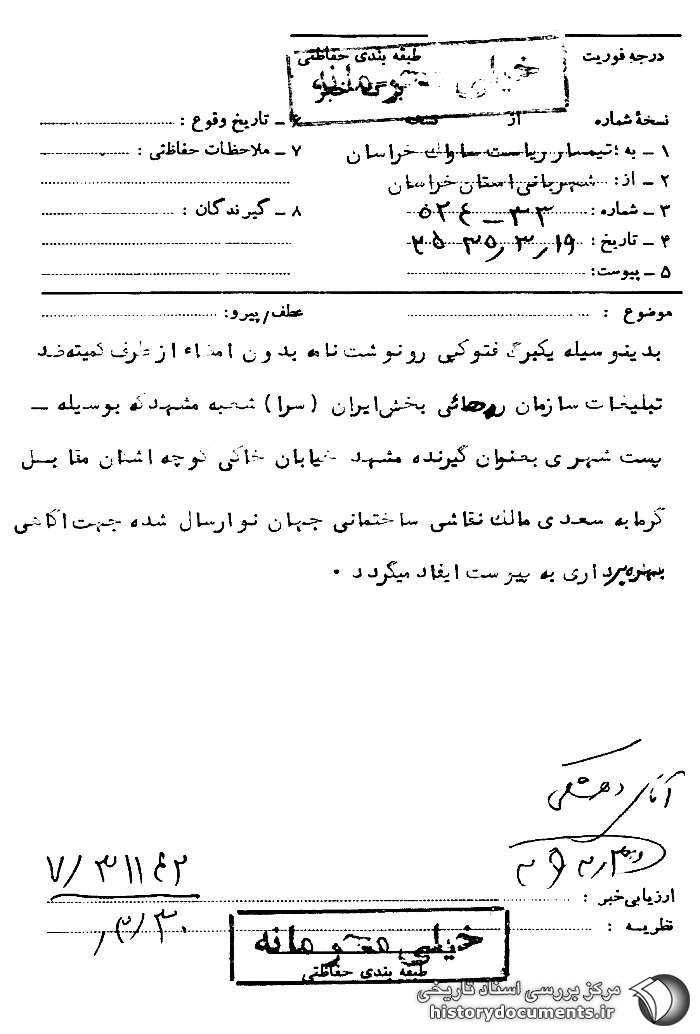 درجه فوریت
طبقه بندی حفاظتی
خیلی
نسخهٔ شماره از نسخه
۶ ـ تاریخ وقوع :
۱ ـ به : تیمسار ریاست ساواک خراسان
۷ ـ ملاحظات حفاظتی :
۲ ـ از : شهربانی استان خراسان
۳ ـ شماره : ۳۳ ـ ۵۲۴
۸ ـ گیرندگان :
۴ ـ تاریخ : ۳۵/۳/۱۹ ۲۵
۵ ـ پیوست :
موضوع :
عطف/پیرو:
بدینوسیله یکبرگ فتوکپی رونوشت نامه بدون امضاء از طرف کمیته ضد
تبلیغات سازمان رهائی بخش ایران (سرا) شعبه مشهد که بوسیله ـ
پست شهری بعنوان گیرنده مشهد خیابان خاکی کوچه اشنان مقابل
گرمابه سعدی مالک نقاشی ساختمانی جهان نو ارسال شده جهت آگاهی
بهره برداری به پیوست ایفاد میگردد .
آقای
۷/۳۱۱۴۲
ارزیابی خبر :
نظریه :
۳/۳۰
خیلی محرمانه
طبقه بندی حفاظتی
مرکز بررسی اسناد تاریخی
historydocuments.ir